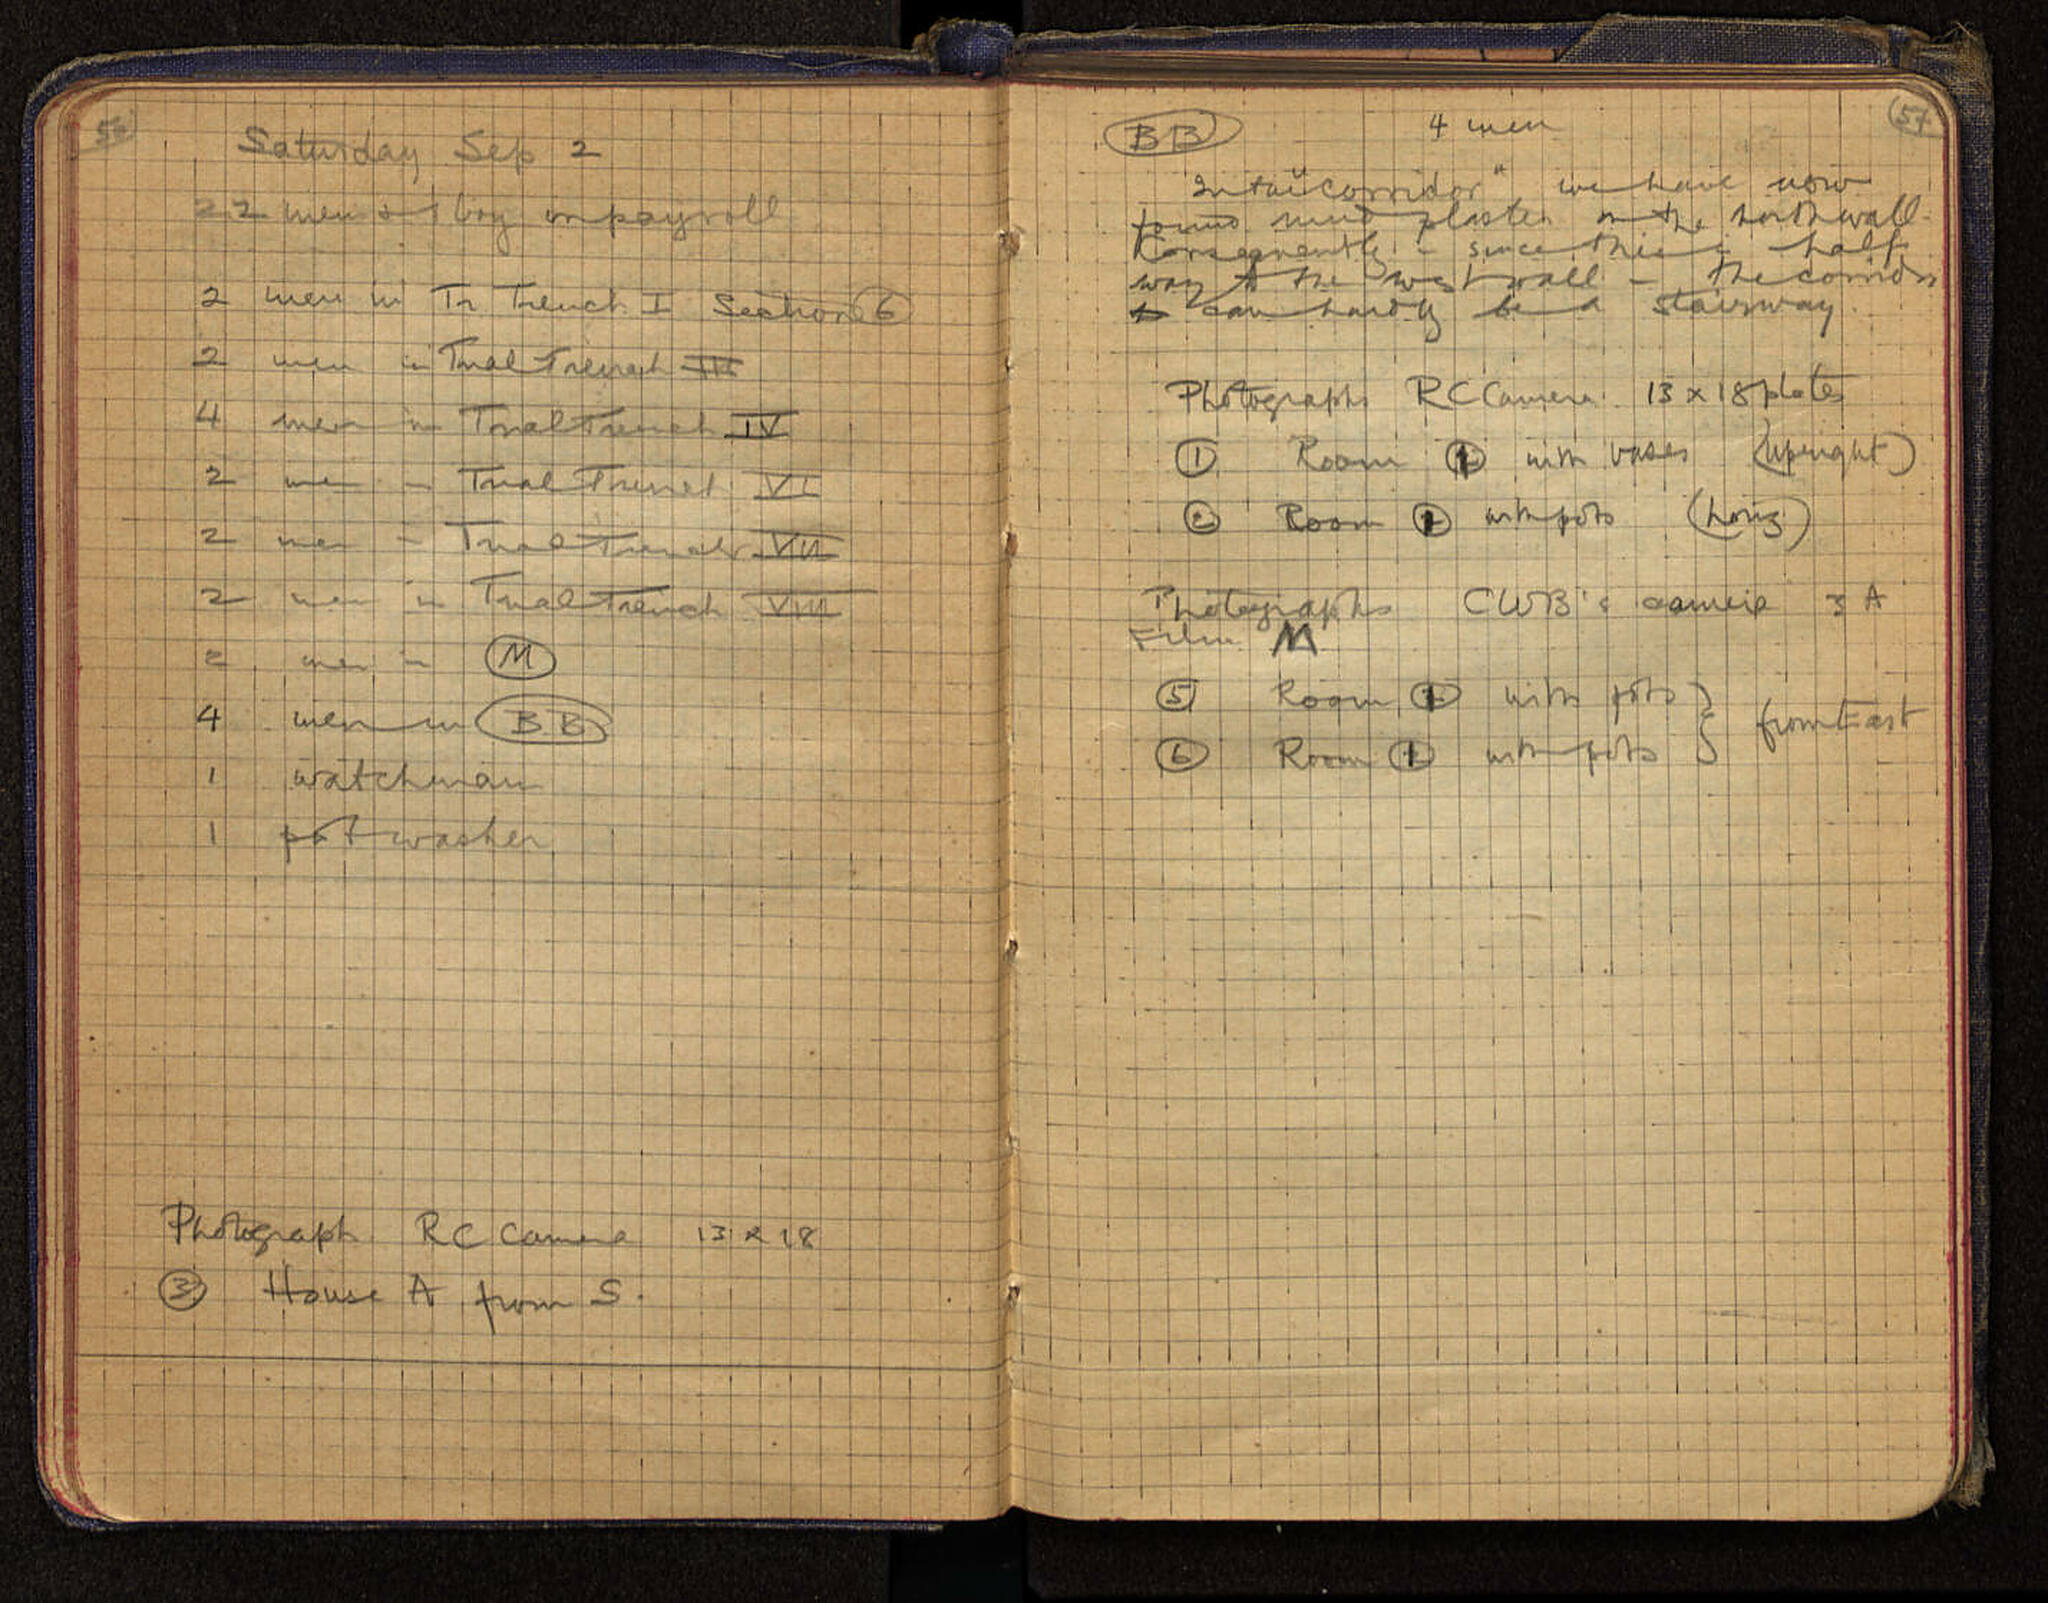 56
Saturday Sep 2
22 men & 1 boy on payroll
2 men in Tr Trench I Section 6
2 men in Trial Trench III
4 men in Trial Trench IV
2 men in Trial Trench VI
2 men in Trial Trench VII
2 men in Trial Trench VIII
2 men in M
4 men in BB
1 watchman
1 pot washer
Photograph RC Camera 13 x 18
3 House A from S.
57
BB 4 men
In the "corridor" we have now
found mud plaster on the north wall.
Consequently - since this is half
way to the west wall - the corridor
can hardly be a stairway.
Photographs RC Camera 13 x 18 plates
1 Room 1 with vases (upright)
2 Room 1 with pots (horiz)
Photographs CWB's camera 3 A
Film M
5 Room 1 with pots
6 Room 1 with pots
from East